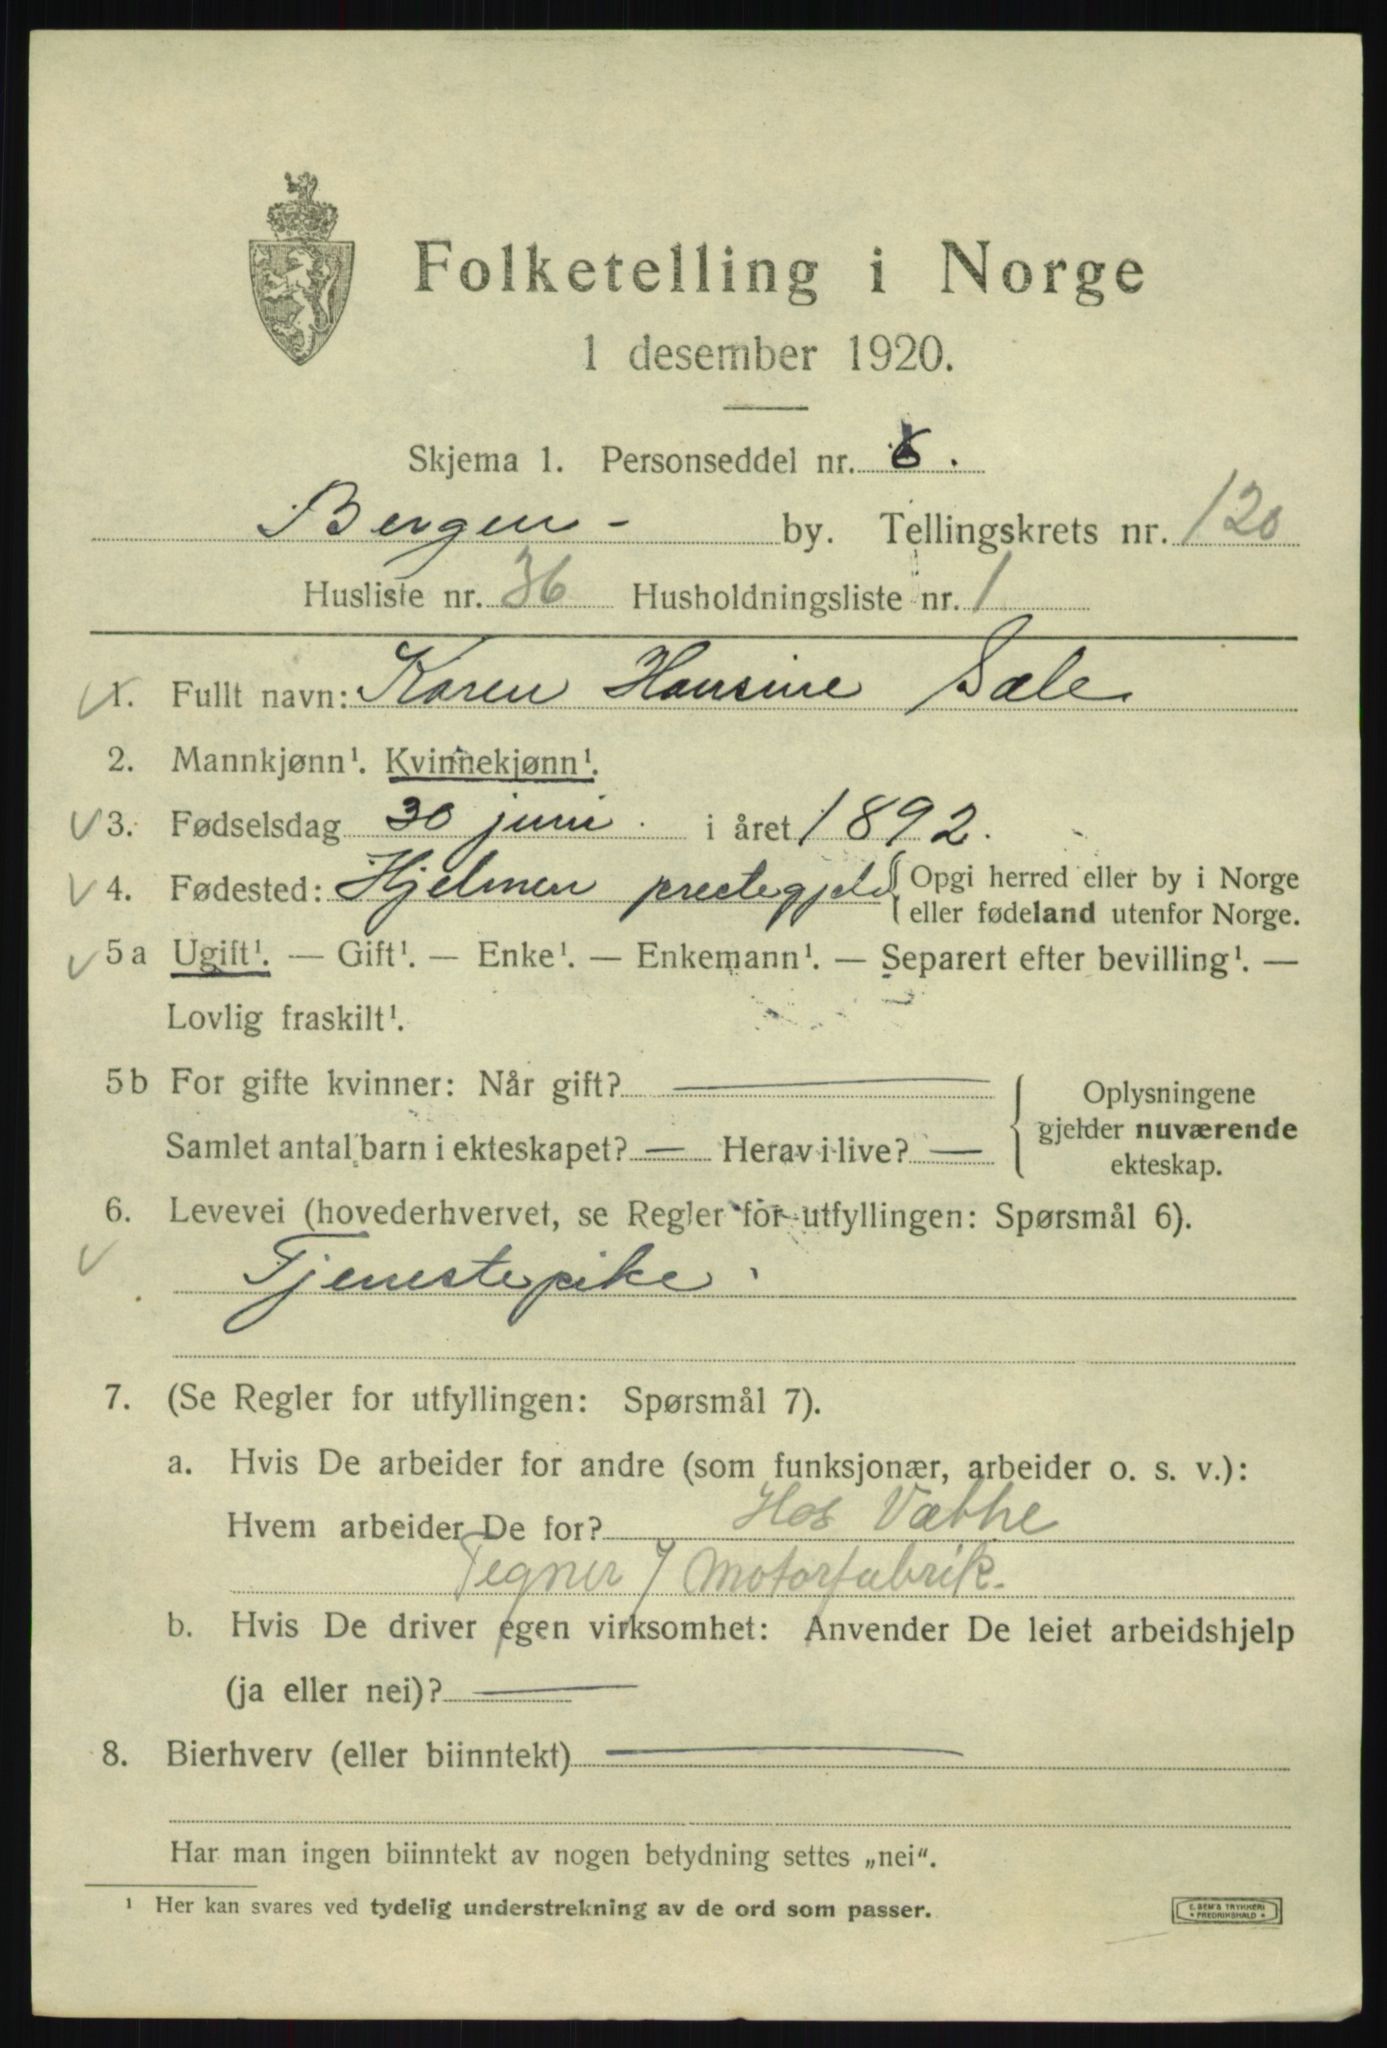 Folketelling i Norge
1 desember 1920.
Skjema 1. Personseddel nr.
Bergen - by. Tellingskrets nr. 120
Husliste nr. 36 Husholdningsliste nr. 1
1. Fullt navn: Karen Hansine Sæle
2. Mannkjønn¹. Kvinnekjønn¹.
3. Fødselsdag 30 juni. i året 1892.
4. Fødested: Hjelmen prestegjeld { Opgi herred eller by i Norge
eller fødeland utenfor Norge.
5 a Ugift¹. — Gift¹. — Enke¹. — Enkemann¹. — Separert efter bevilling¹. —
Lovlig fraskilt¹.
5 b For gifte kvinner: Når gift? —
Samlet antal barn i ekteskapet? — Herav i live? —
Oplysningene
gjelder nuværende
ekteskap.
6. Levevei (hovederhvervet, se Regler for utfyllingen: Spørsmål 6).
Tjenestepike.
7. (Se Regler for utfyllingen: Spørsmål 7).
a. Hvis De arbeider for andre (som funksjonær, arbeider o. s. v.):
Hvem arbeider De for? Hos
Tegner / Motorfabrik.
b. Hvis De driver egen virksomhet: Anvender De leiet arbeidshjelp
(ja eller nei)? —
8. Bierhverv (eller biinntekt) —
Har man ingen biinntekt av nogen betydning settes „nei“.
¹ Her kan svares ved tydelig understrekning av de ord som passer.
E. SEM'S TRYKKERI
FREDRIKSHALD